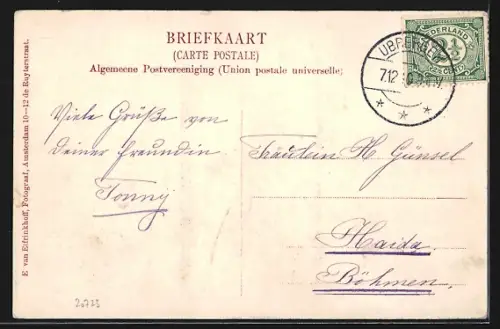 BRIEFKAART
(CARTE POSTALE)
Algemeene Postvereeniging (Union postale universelle)
NEDERLAND
2½
CENT
7.12
Viele Grüße von
deiner Freundin
Tonny
Fräulein H. Günsel
Haida
Böhmen.
E van Erfrinkhoff, Fotograaf, Amsterdam 10—12 de Ruyterstraat.